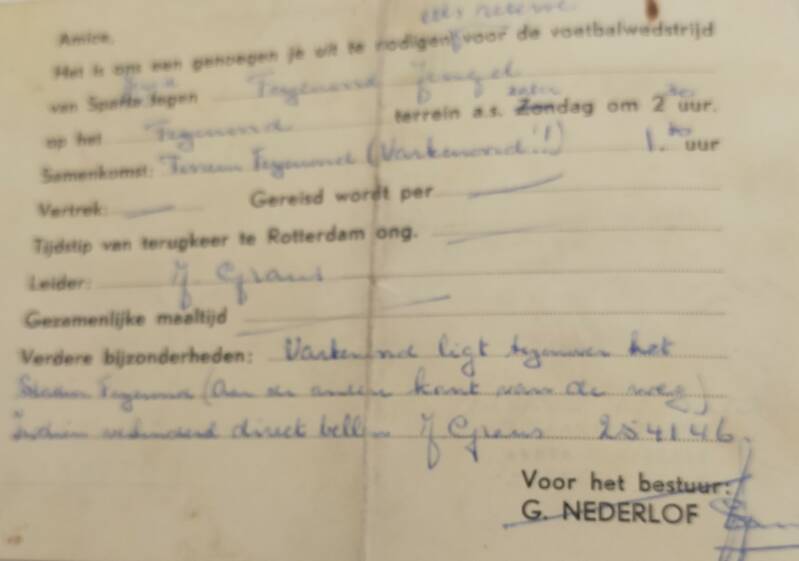 Amice,
als reserve
Het is ons een genoegen je uit te nodigen voor de voetbalwedstrijd
van Sparta tegen Feyenoord Jeugd
op het Feyenoord terrein a.s. Zondag om 2 uur.
zater
Samenkomst: Terrein Feyenoord (Varkenoord!!) 1. uur
Vertrek: — Gereisd wordt per —
Tijdstip van terugkeer te Rotterdam ong. —
Leider: J Graus
Gezamenlijke maaltijd —
Verdere bijzonderheden: Varkenoord ligt tegenover het
Stadion Feyenoord (aan de andere kant van de weg)
Indien verhinderd direct bellen J Graus 254146.
Voor het bestuur:
G. NEDERLOF